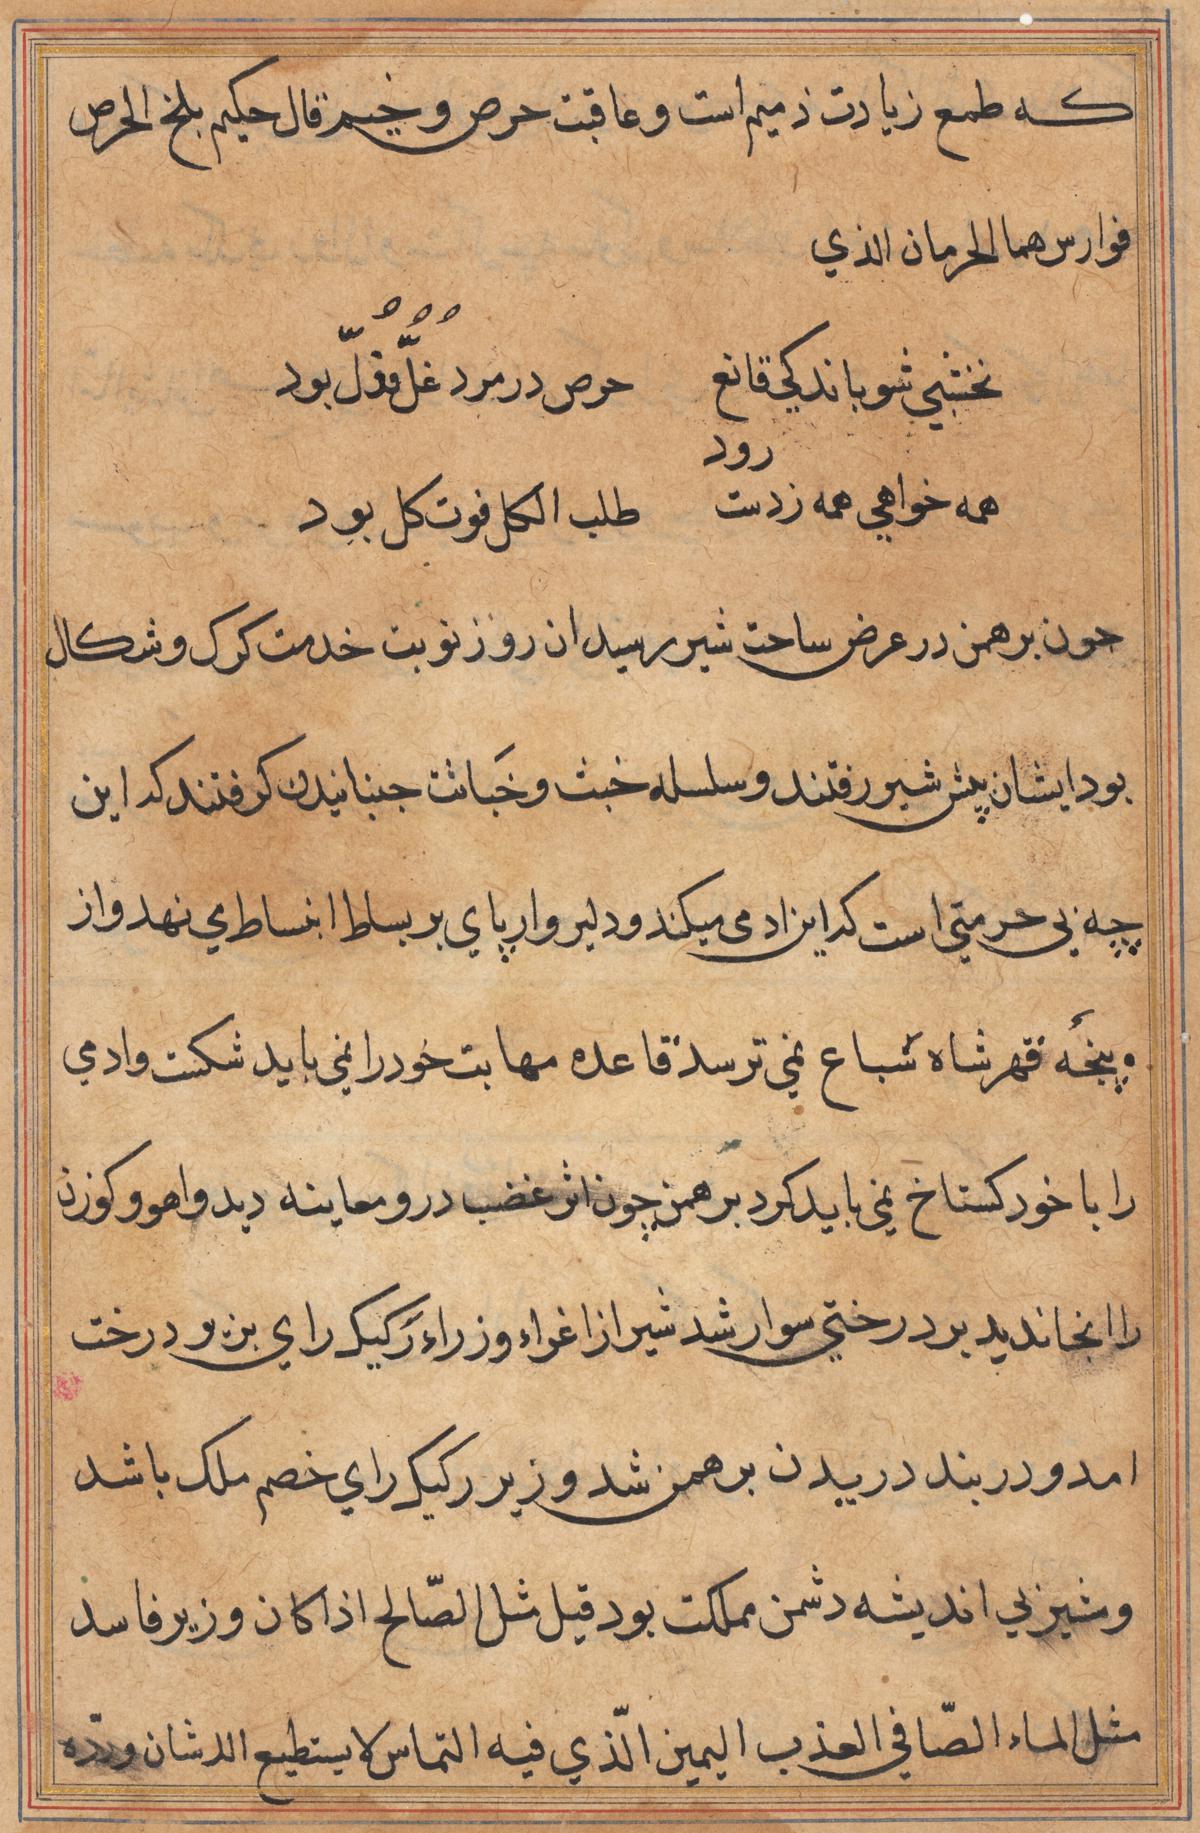 که طمع زیادت ذمیم است و عاقبت حرص وخیم قال حکیم بلخ الحرص
فوارس هما الحرمان الذي
نخشبي شو باندکي قانع حرص در مرد غُلّ و ذُلّ بود
رود
همه خواهي همه زدست طلب الکل فوت کل بود
چون برهمن در عرض ساحت شیر رسید ان روز نوبت خدمت کرک و شکال
بود ایشان پیش شیر رفتند و سلسله خبث و خَباثت جنبانیدن کرفتند که این
چه بي حرمتي است که این ادمی میکند و دلیروار پاي بر بساط انبساط مي نهد و از
پنجهٔ قهر شاه سباع نمي ترسد قاعده مهابت خود را نمي باید شکست وادمي
را با خود کستاخ نمي باید کرد برهمن چون اثر غضب درو معاینه دید واهو و کوزن
را انجا ندید بر درختي سوار شد شیر از اغواء وزراء رَکیک راي بزیر درخت
امد و در بند دریدن برهمن شد وزیر رکیک راي خصم ملک باشد
ومشیر بي اندیشه دشمن مملکت بود قیل مثل الصّالح اذا کان وزیر فاسد
مثل الماء الصّافي العذب الیمین الّذي فیه التماس لا یستطیع